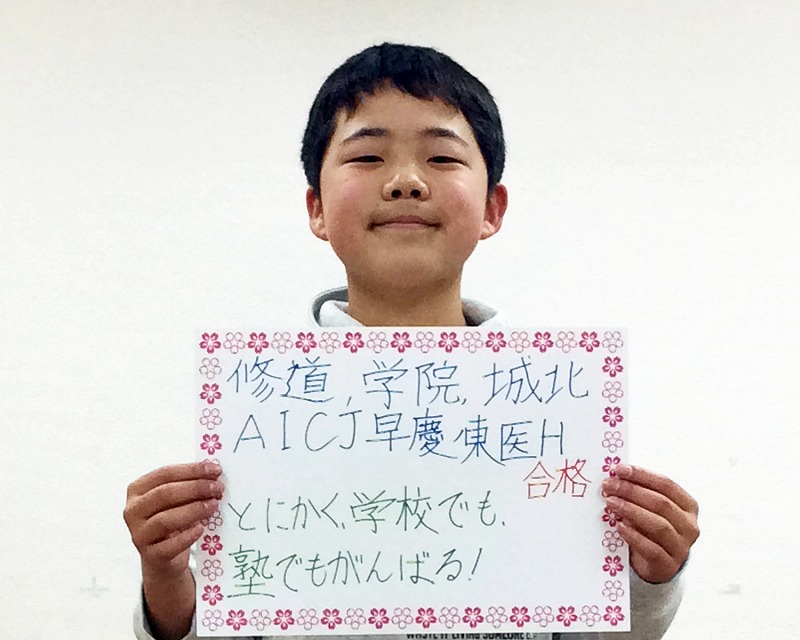 修道,学院,城北
AICJ早慶東医H
合格
とにかく、学校でも、
塾でもがんばる!